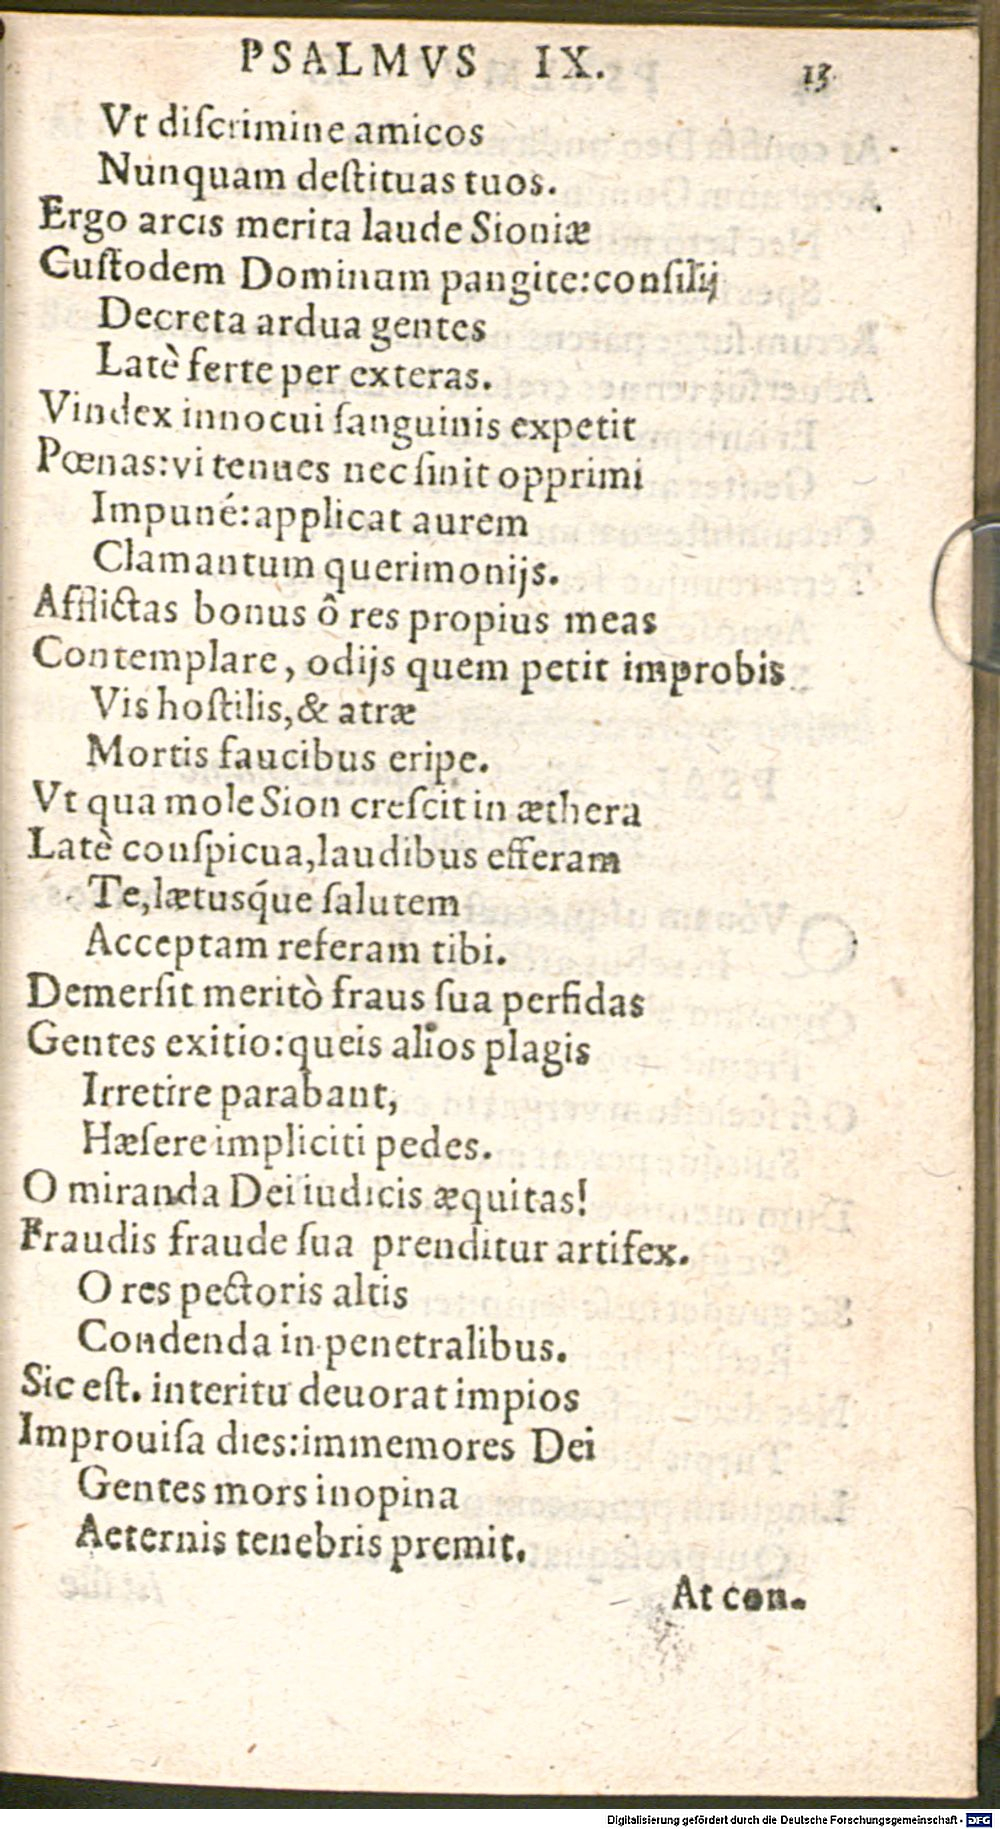 PSALMVS IX. 13
Vt discrimine amicos
Nunquam destituas tuos.
Ergo arcis merita laude Sioniæ
Custodem Dominum pangite: consilij
Decreta ardua gentes
Latè ferte per exteras.
Vindex innocui sanguinis expetit
Pœnas: vi tenues nec sinit opprimi
Impuné: applicat aurem
Clamantum querimonijs.
Afflictas bonus ô res propius meas
Contemplare, odijs quem petit improbis
Vis hostilis, & atræ
Mortis faucibus eripe.
Vt qua mole Sion crescit in æthera
Latè conspicua, laudibus efferam
Te, lætusq́ue salutem
Acceptam referam tibi.
Demersit meritò fraus sua perfidas
Gentes exitio: queis alios plagis
Irretire parabant,
Hæsere impliciti pedes.
O miranda Dei iudicis æquitas!
Fraudis fraude sua prenditur artifex.
O res pectoris altis
Condenda in penetralibus.
Sic est. interitu deuorat impios
Improuisa dies: immemores Dei
Gentes mors inopina
Aeternis tenebris premit.
At con-
Digitalisierung gefördert durch die Deutsche Forschungsgemeinschaft - DFG